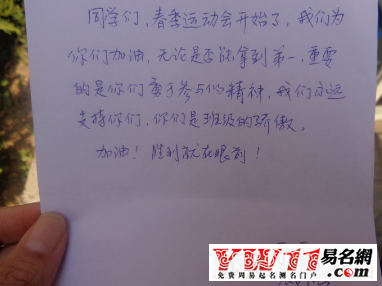 同学们，春季运动会开始了，我们为
你们加油，无论是否能拿到第一，重要
的是你们勇于参与的精神，我们永远
支持你们，你们是班级的骄傲。
加油！胜利就在眼前！
YWTT 易名網®
免费周易起名测名门户